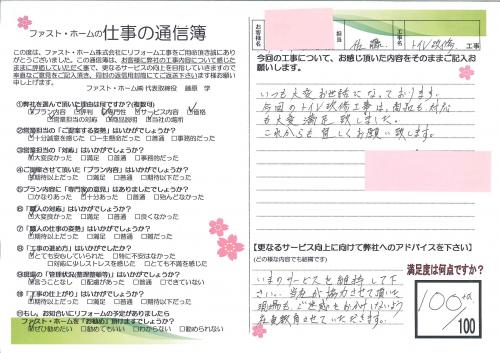 ファスト・ホームの仕事の通信簿
この度は、ファスト・ホーム株式会社にリフォーム工事をご用命頂き誠にあり
がとうございました。この通信簿は、お客様に弊社の工事内容について感じた
ままに評価していただく事で、更なるサービスの向上を目指していきますので
率直なご意見をご記入頂き、同封の返信用封筒にてご返送下さいます様お願い
申し上げます。
ファスト・ホーム㈱ 代表取締役 藤原 学
①弊社を選んで頂いた理由は何ですか?(複数可)
プラン内容 評判 専門性 サービス内容 価格
営業担当の対応 商品説明 当社の場所
②営業担当の「ご提案する姿勢」はいかがでしょうか?
十分誠意を感じた 一生懸命だった 普通 事務的だった
③営業担当の「対応」はいかがでしょうか?
大変良かった 満足 普通 事務的だった
④ご提案させて頂いた「プラン内容」はいかがでしょうか?
期待以上だった 満足 普通 期待以下だった
⑤プラン内容に「専門家の意見」はありましたでしょうか?
かなりあった 十分あった 普通 殆んどなかった
⑥「職人の対応」はいかがでしょうか?
大変良かった 満足 普通 良くなかった
⑦「職人の仕事の姿勢」はいかがでしょうか?
期待以上だった 満足 普通 期待以下だった
⑧「工事の進め方」はいかがでしょうか?
とても安心していられた 特に不安はなかった
対応に少しストレスを感じた とても不満を感じた
⑨現場の「管理状況(整理整頓等)」はいかがでしょうか?
言うことなし 配慮があった 普通 できていない
⑩「工事の仕上がり」はいかがでしょうか?
期待以上だった 満足 普通 期待以下だった
⑪もし、お知合いにリフォームの予定がありましたら
ファスト・ホームを「お勧め」頂けますでしょうか?
ぜひ勧めたい 勧めてもいい わからない 勧められない
お客様名
担当
佐藤
工事名
トイレ改修 工事
今回の工事について、お感じ頂いた内容をそのままご記入お
願いします。
いつも大変お世話になっております。
今回のトイレ改修工事は、商品も対応
も大変満足致しました。
これからも宜しくお願い致します。
【更なるサービス向上に向けて弊社へのアドバイスを下さい】
(どの様な内容でも結構です)
いまのサービスを維持して下
さい。当社が協力させて頂いた
現場も、ご迷惑をおかけしないよう
社員教育させていただきます。
満足度は何点ですか?
100点
100